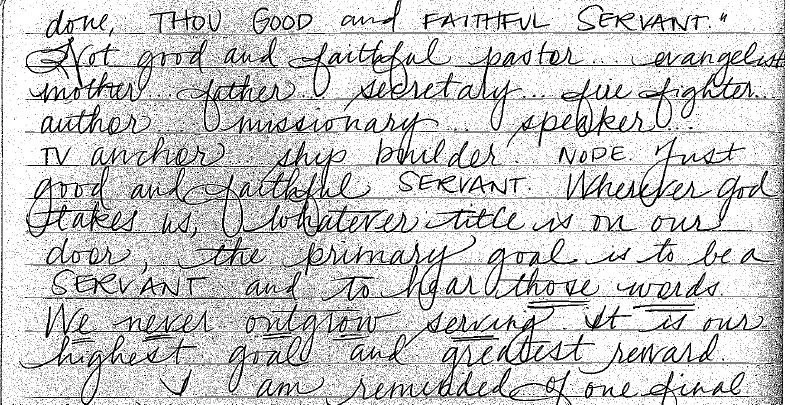 done, THOU GOOD and FAITHFUL SERVANT."
Not good and faithful pastor... evangelist
mother... father... secretary... fire fighter...
author... missionary... speaker...
TV anchor... ship builder. NOPE. Just
good and faithful SERVANT. Wherever God
takes us, whatever title is on our
door, the primary goal is to be a
SERVANT and to hear those words.
We never outgrow serving. It is our
highest goal and greatest reward.
I am reminded of one final